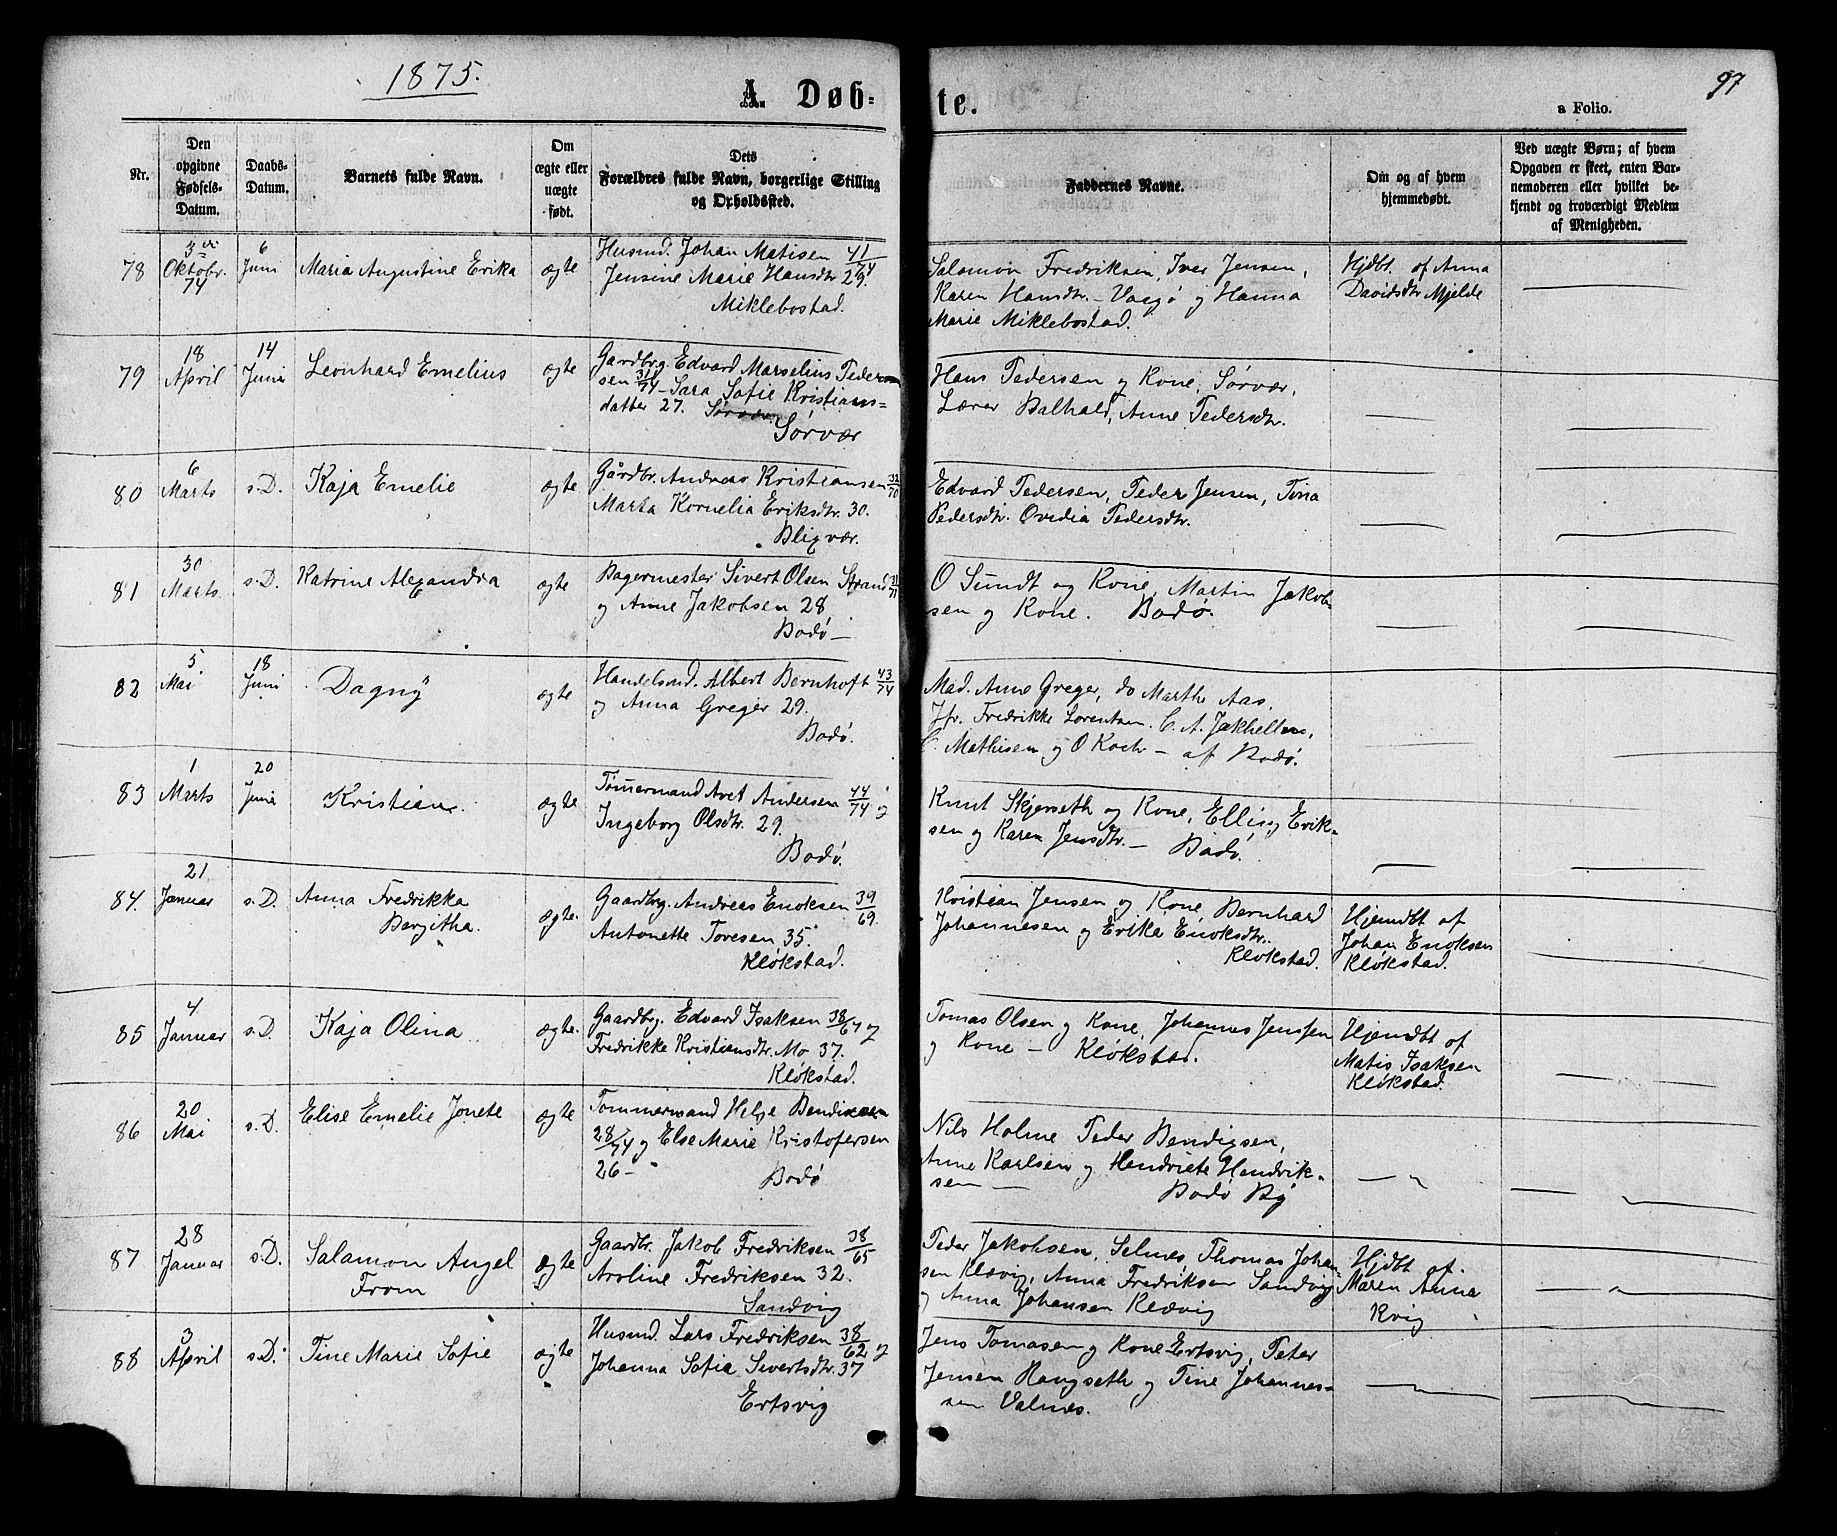 1875.
A. Døb-
te.
97
a Folio.
Nr.
Den
opgivne
Fødsels-
Datum.
Daabs-
Datum.
Barnets fulde Navn.
Om
ægte eller
uægte
født.
Dets
Forældres fulde Navn, borgerlige Stilling
og Opholdssted.
Faddernes Navne.
Om og af hvem
hjemmedøbt.
Ved uægte Børn; af hvem
Opgaven er skeet, enten Bar-
nemoderen eller hvilket be-
kjendt og troværdigt Medlem
af Menigheden.
78
3die
Oktobr.
74
6
Juni
Maria Augustine Erika
ægte
Husmd. Johan Matisen 41/74
Jensine Marie Hansdtr 29.
Miklebostad.
Salamon Fredriksen, Iver Jensen,
Karen Hansdtr. – Vaagø og Hanna
Marie Miklebostad.
Hjdbt. af Anna
Davidsdtr Mjelde
79
18
April
14
Juni
Leonhard Emelius
ægte
Gardbrg. Edvard Marselius Peder
sen 31/74 – Sara Sofie Kristians=
datter 27.
Sørvær
Hans Pedersen og Kone, Sørvær,
Lærer Balhald, Anne Pedersdtr.
80
6
Marts
s.D.
Kaja Emelie
ægte
Gårdbr. Andreas Kristiansen 32/70
Marta Kornelia Eriksdtr. 30.
Blixvær.
Edvard Pedersen, Peder Jensen, Tina
Pedersdtr. Ovidia Pedersdtr.
81
30
Marts.
s.D.
Katrine Alexandra
ægte
Bagermester Sivert Olsen Strand 31/71
og Anne Jakobsen 28
Bodø –
O Sundt og Kone, Martin Jakob-
sen og Kone. Bodø.
82
5
Mai
18
Juni
Dagny
ægte
Handelsmd. Albert Bernhoft 43/74
og Anna Greger 29.
Bodø.
Mad. Anne Greger, do Marthe Aas,
Jfr. Fredrikke Lorentzen. C. A. Jakhellen,
C. Mathisen og O Koch – af Bodø.
83
1
Marts
20
Juni
Kristian
ægte
Tømermand Avet Andersen 44/74 og
Ingeborg Olsdtr. 29.
Bodø.
Knut Skjerseth og Kone, Elling Erik-
sen og Karen Jensdtr. – Bodø.
84.
21
Januar
s.D.
Anna Fredrikka
Bergitha.
ægte.
Gaardbrg. Andreas Enoksen 39/69.
Antonette Toresen 35.
Kløkstad.
Kristian Jensen og Kone, Bernhard
Johannesen og Erika Enoksdtr.
Kløkstad.
Hjemdbt af
Johan Enoksen
Kløkstad.
85
4
Januar
s.D.
Kaja Olina
ægte.
Gaardbrg. Edvard Isaksen 38/67 og
Fredrikke Kristiansdtr. Mo 37.
Kløkstad.
Tomas Olsen og Kone, Johannes Jenssen
og Kone – Kløkstad.
Hjemdbt af
Matis Isaksen
Kløkstad.
86
20
Mai
s.D.
Elise Emelie Jonete
ægte
Tømmermand Helge Bendixsen
28/74 og Else Marie Kristofersen
26 –
Bodø
Nils Holme Peder Bendigsen,
Anne Karlsen og Hendriete Hendrik-
sen –
Bodø By
87
28
Januar
s.D.
Salamon Angel
From
ægte
Gaardbr. Jakob Fredriksen 38/65
Aroline Fredriksen 32.
Sandvig
Peder Jakobsen, Selnes, Thomas Johan-
sen Klævig, Anna Fredriksen Sandvig
og Anna Johansen Klævig
Hjdbt af.
Maren Anna
Kvig
88
3
April
s.D.
Tine Marie Sofie
ægte
Husmd. Lars Fredriksen 38/62 og
Johanna Sofia Sivertsdtr. 37
Ertsvig
Jens Tomasen og Kone Ertsvig, Peter
Jensen Hangseth og Tine Johannes-
sen Valnes.